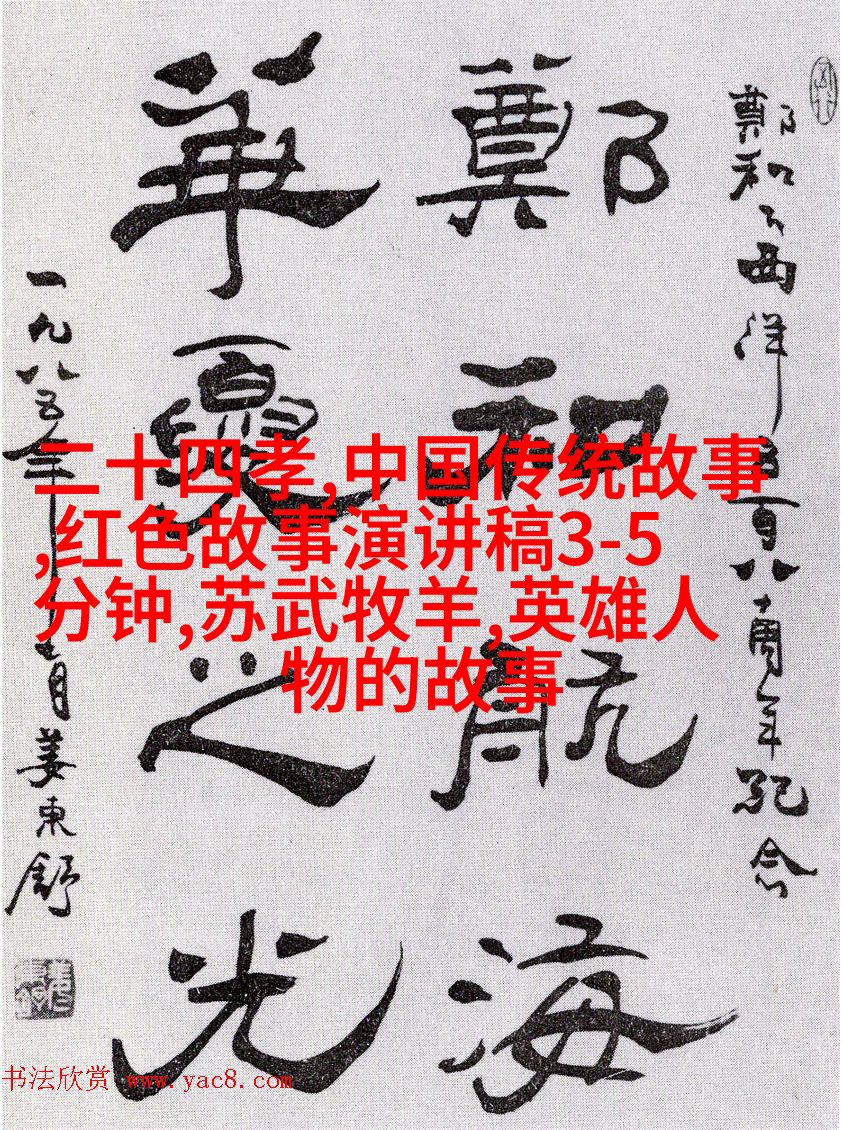 鄭和下西洋五百八十周年紀念
鄭和航海
華夏之光
一九八五年十一月姜東舒
二十四孝,中国传统故事
,红色故事演讲稿3-5
分钟,苏武牧羊,英雄人
物的故事
书法欣赏 www.yac8.com